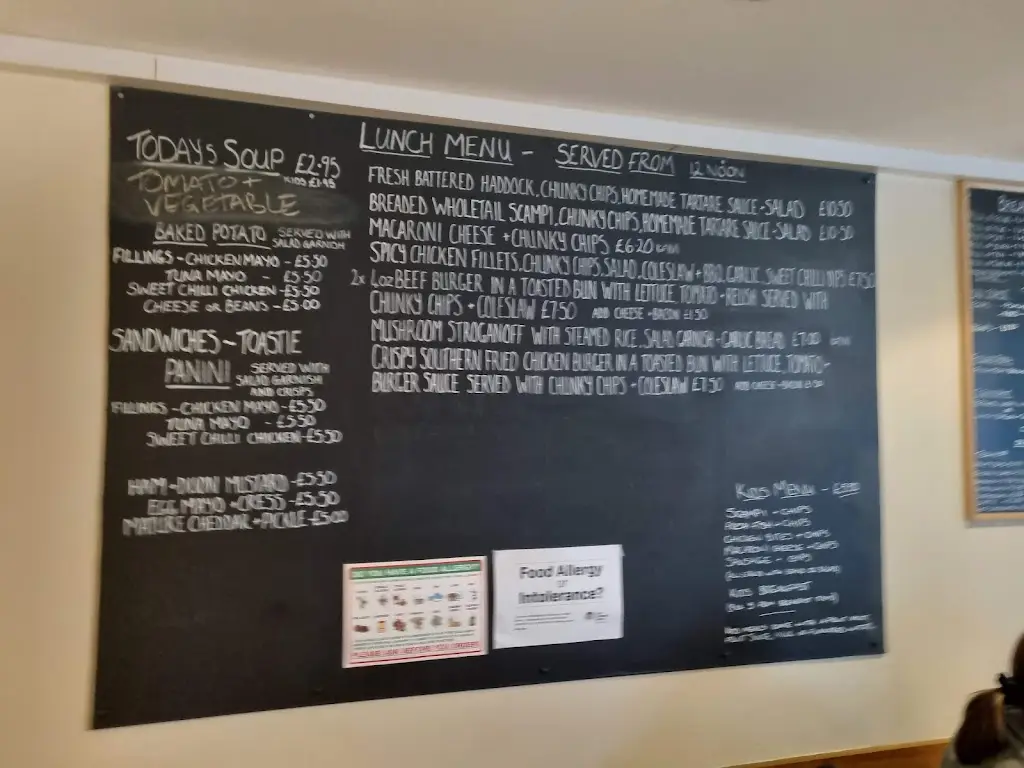 TODAYS SOUP £2.95
KIDS £1.95
TOMATO +
VEGETABLE
BAKED POTATO SERVED WITH
SALAD GARNISH
FILLINGS - CHICKEN MAYO - £5.50
TUNA MAYO - £5.50
SWEET CHILLI CHICKEN - £5.50
CHEESE OR BEANS - £5.00
SANDWICHES - TOASTIE
PANINI SERVED WITH
SALAD GARNISH
AND CRISPS
FILLINGS - CHICKEN MAYO - £5.50
TUNA MAYO - £5.50
SWEET CHILLI CHICKEN - £5.50
HAM + DIJON MUSTARD - £5.50
EGG MAYO + CRESS - £5.50
MATURE CHEDDAR + PICKLE - £5.00
LUNCH MENU - SERVED FROM 12 NOON
FRESH BATTERED HADDOCK, CHUNKY CHIPS, HOMEMADE TARTARE SAUCE + SALAD £10.50
BREADED WHOLETAIL SCAMPI, CHUNKY CHIPS, HOMEMADE TARTARE SAUCE + SALAD £10.50
MACARONI CHEESE + CHUNKY CHIPS £6.20
SPICY CHICKEN FILLETS, CHUNKY CHIPS, SALAD, COLESLAW + BBQ, GARLIC, SWEET CHILLI DIPS £7.50
2x 4oz BEEF BURGER IN A TOASTED BUN WITH LETTUCE, TOMATO + RELISH SERVED WITH
CHUNKY CHIPS + COLESLAW £7.50 ADD CHEESE + BACON £1.50
MUSHROOM STROGANOFF WITH STEAMED RICE, SALAD GARNISH + GARLIC BREAD £7.00
CRISPY SOUTHERN FRIED CHICKEN BURGER IN A TOASTED BUN WITH LETTUCE, TOMATO +
BURGER SAUCE SERVED WITH CHUNKY CHIPS + COLESLAW £7.50 ADD CHEESE + BACON £1.50
KIDS MENU -
SCAMPI + CHIPS
CHICKEN BITES + CHIPS
MACARONI CHEESE + CHIPS
SAUSAGE + CHIPS
KIDS BREAKFAST
DO YOU HAVE A FOOD ALLERGY?
Food Allergy
or
Intolerance?